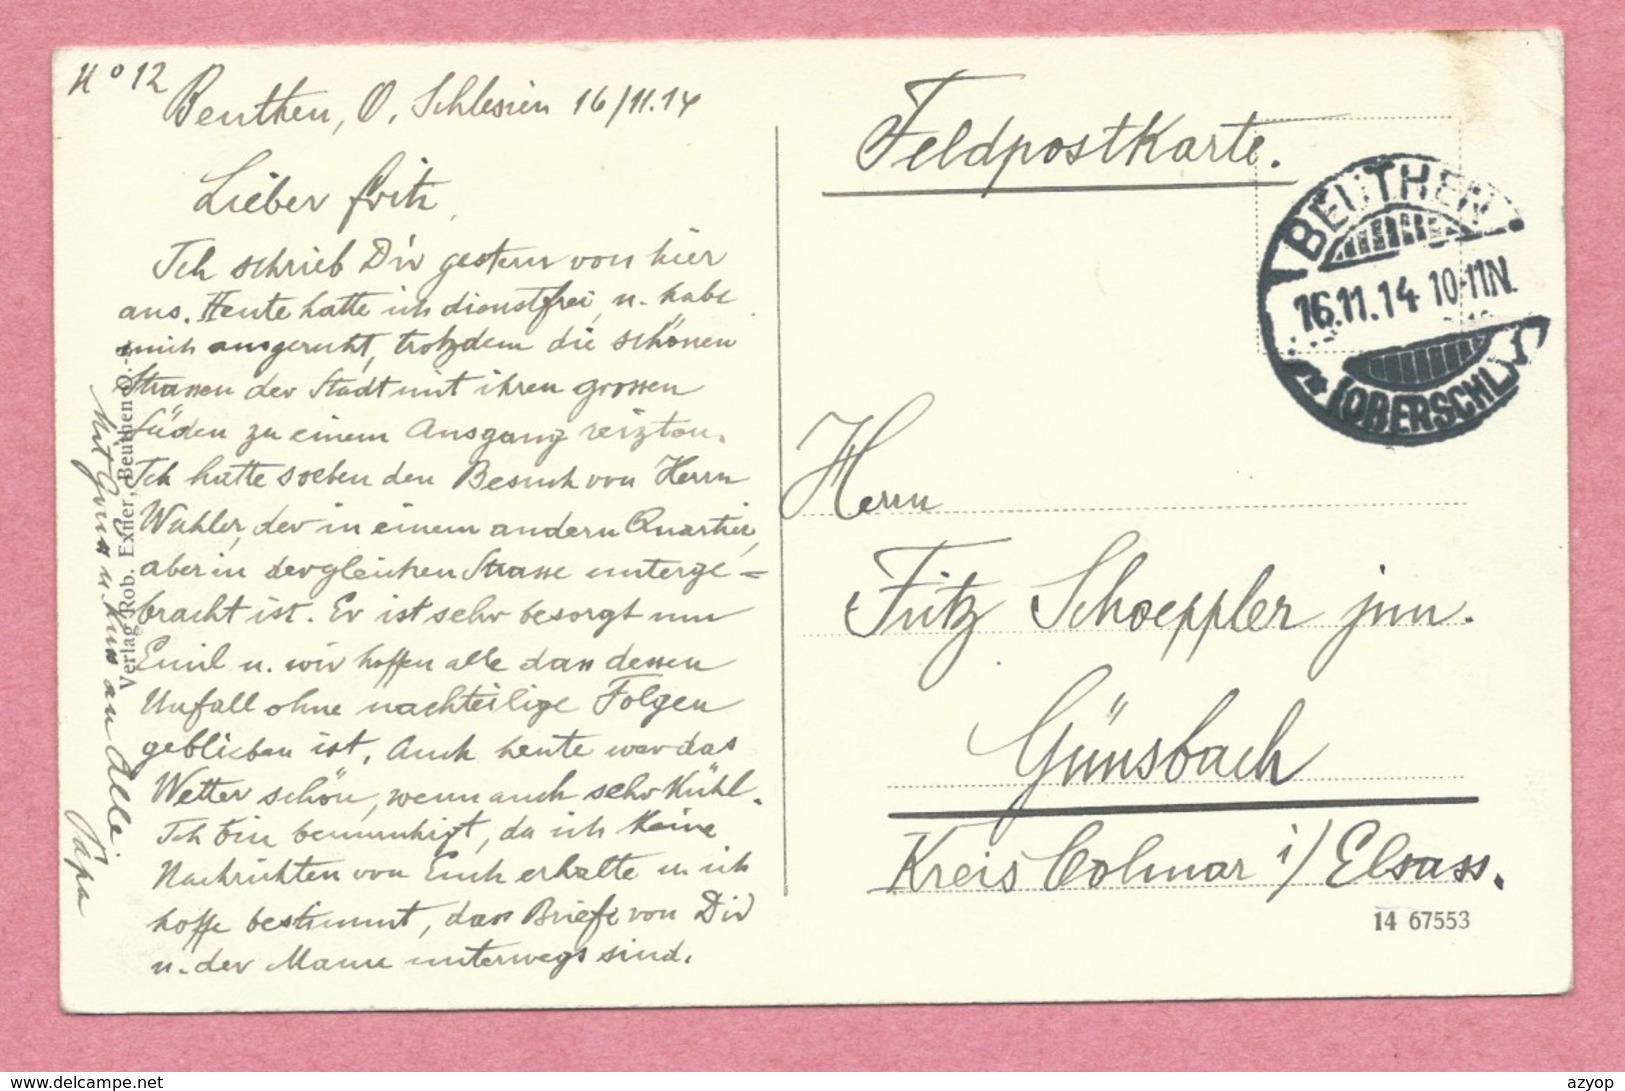 No 12
Beuthen, O. Schlesien 16/11.14
Lieber Fritz,
Ich schrieb Dir gestern von hier
aus. Heute hatte ich dienstfrei, u. habe
mich ausgeruht, trotzdem die schönen
Strassen der Stadt mit ihren grossen
Läden zu einem Ausgang reizten.
Ich hatte soeben den Besuch von Herrn
Wahler, der in einem andern Quartier,
aber in der gleichen Strasse unterge=
bracht ist. Er ist sehr besorgt um
Emil u. wir hoffen alle dass dessen
Unfall ohne nachteilige Folgen
geblieben ist. Auch heute war das
Wetter schön, wenn auch sehr kühl.
Ich bin beunruhigt, da ich keine
Nachrichten von Euch erhalte u. ich
hoffe bestimmt, dass Briefe von Dir
u. der Mame unterwegs sind.
Mit Gruss u. Kuss an Alle
Papa
Verlag Rob. Exner, Beuthen O.-
Feldpostkarte.
BEUTHEN
16.11.14 10-11N.
(OBERSCHL)
Herrn
Fritz Schoeppler jun.
Günsbach
Kreis Colmar i/ Elsass.
14 67553
delcampe.net
azyop